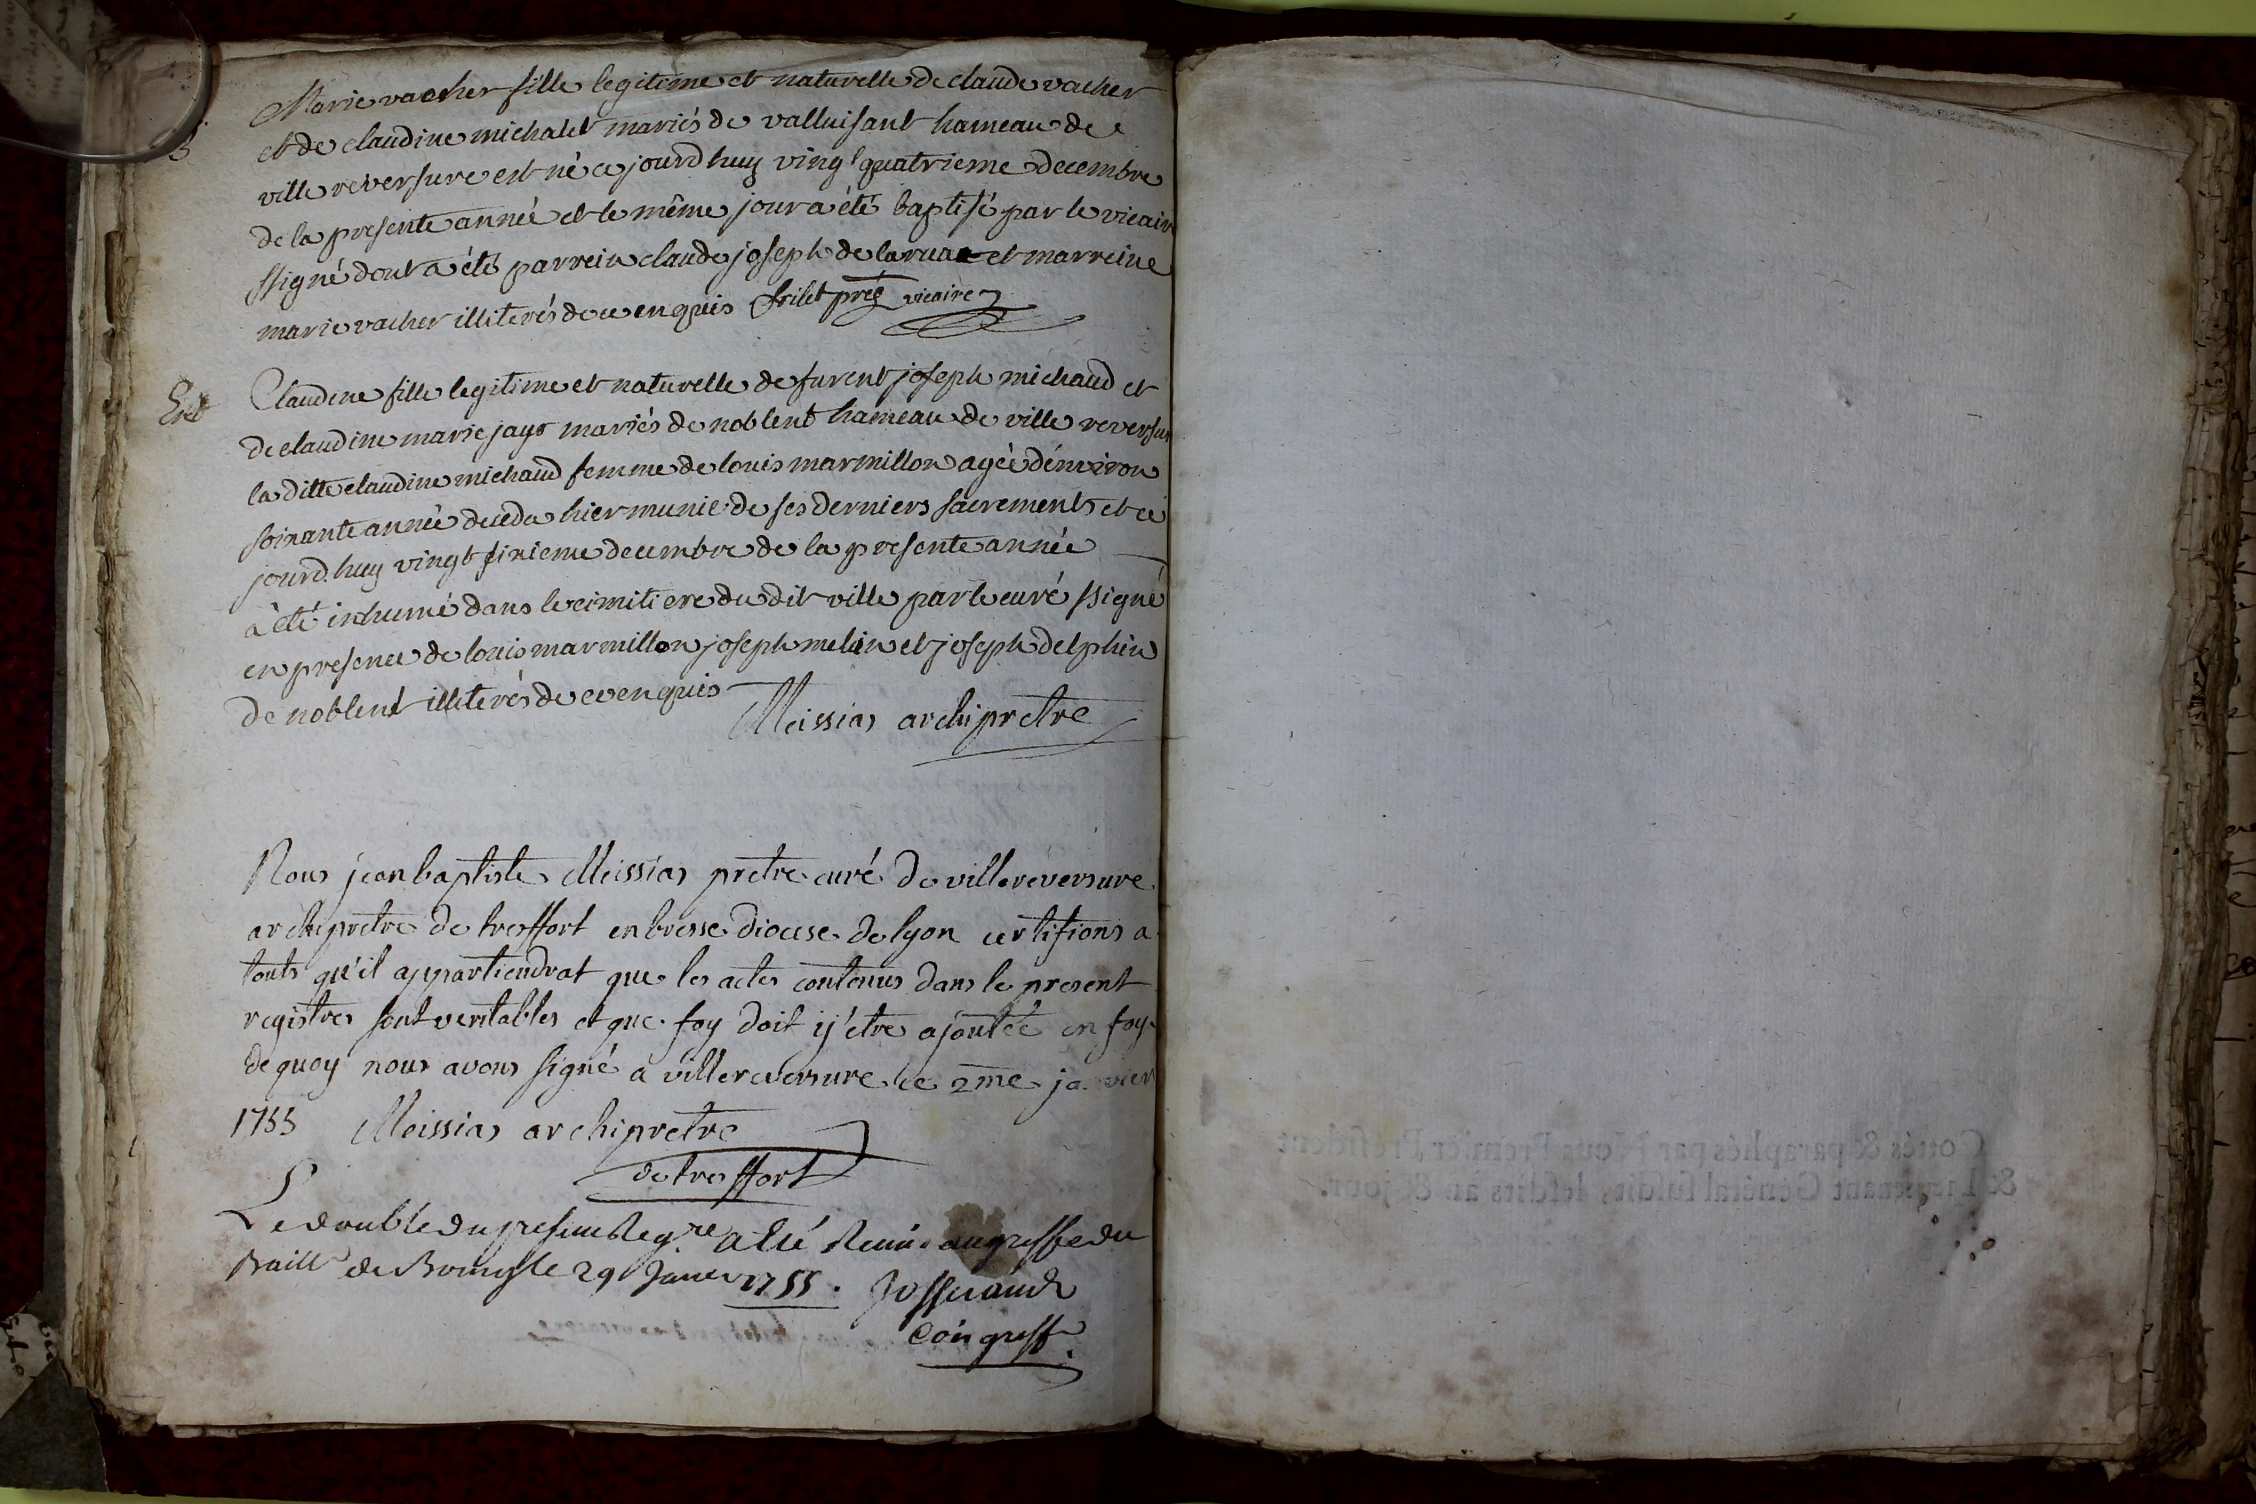 B
Marie vacher fille legitime et naturelle de claude vacher
et de claudine michalet mariés de valluisant hameau de
ville reversure est né ce jourd huy vingt quatrieme decembre
de la presente année et le même jour a été baptisé par le vicaire
ssigné dont a été parrein claude joseph de larua et marreine
marie vacher illiterés de ce enquis frilet prêe vicaire
Ent
Claudine fille legitime et naturelle de furent joseph michaud et
de claudine marie jays mariés de noblent hameau de ville reversure
la ditte claudine michaud femme de louis marmillon agée dénviron
soixante année decéda hier munie de ses derniers sacrements et ce
jourd.huy vingt sixieme decembre de la presente année
à été inhumé dans le cimitiere du dit ville par le curé ssigné
en presence de louis marmillon joseph melin et joseph delphin
de noblent illiterés de ce enquis
Meissias archiprêtre
Nous jean baptiste Meissias prêtre curé de villereversure
archiprêtre de treffort en bresse diocese de lyon certifions a
touts qu'il appartiendrat que les actes contenus dans le present
registres sont veritables et que foy doit y être ajoutée en foy
de quoy nous avons signé a villereversure ce 2me janvier
1755 Meissias archiprêtre
de treffort
Le double du present Regre a été Remis au greffe du
Baill. de Bourg le 29 Janvr 1755. Josserand
Con greff.
Cottés & paraphés par Nous Premier Président
& Lieutenant Général susdit, desdits an & jour.